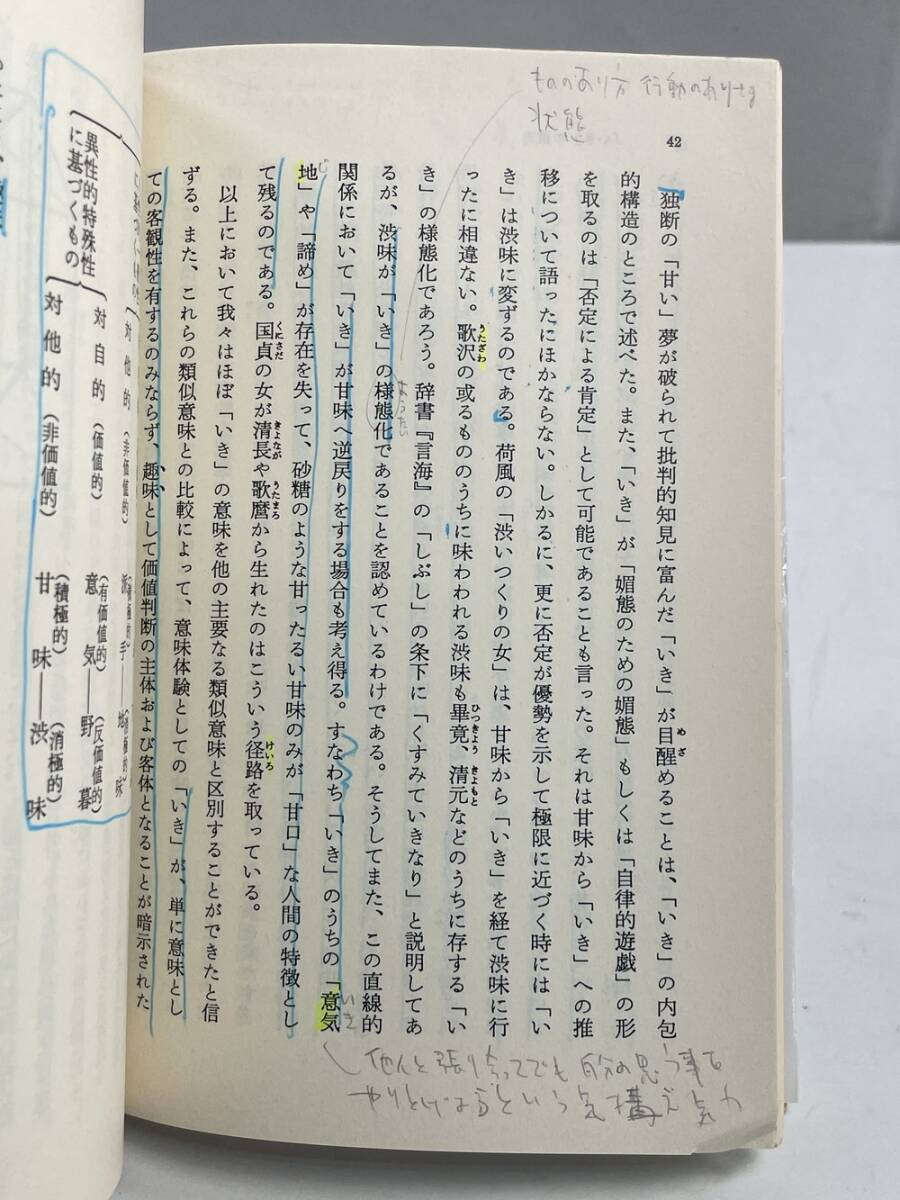 もののあり方 行動のありさま
状態
42
独断の「甘い」夢が破られて批判的知見に富んだ「いき」が目醒めることは、「いき」の内包
的構造のところで述べた。また、「いき」が「媚態のための媚態」もしくは「自律的遊戯」の形
を取るのは「否定による肯定」として可能であることも言った。それは甘味から「いき」への推
移について語ったにほかならない。しかるに、更に否定が優勢を示して極限に近づく時には「い
き」は渋味に変ずるのである。荷風の「渋いつくりの女」は、甘味から「いき」を経て渋味に行
ったに相違ない。歌沢の或るもののうちに味わわれる渋味も畢竟、清元などのうちに存する「い
き」の様態化であろう。辞書『言海』の「しぶし」の条下に「くすみていきなり」と説明してあ
るが、渋味が「いき」の様態化であることを認めているわけである。そうしてまた、この直線的
関係において「いき」が甘味へ逆戻りをする場合も考え得る。すなわち「いき」のうちの「意気
地」や「諦め」が存在を失って、砂糖のような甘ったるい甘味のみが「甘口」な人間の特徴とし
て残るのである。国貞の女が清長や歌麿から生れたのはこういう径路を取っている。
以上において我々はほぼ「いき」の意味を他の主要なる類似意味と区別することができたと信
ずる。また、これらの類似意味との比較によって、意味体験としての「いき」が、単に意味とし
ての客観性を有するのみならず、趣味として価値判断の主体および客体となることが暗示された
めざ
うたざわ
ひっきょう
きよもと
ようたい
じ
いき
くにさだ
きよなが
うたまろ
けいろ
他人と張り合ってでも自分の思う事を
やりとげようという気構え 気力
対他的(非価値的)
異性的特殊性
に基づくもの
対自的(価値的) (有価値的)意気――野暮(反価値的)
対他的(非価値的) (積極的)甘味――渋味(消極的)